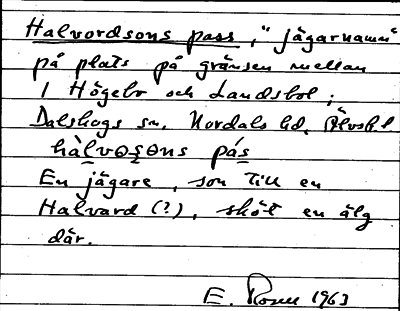 Halvordsons pass, "jägarnamn"
på plats på gränsen mellan
1 Högebo och Landsbol;
Dalskogs sn. Nordals hd. Älvsbl
hàlvɷsɷns pás
En jägare, son till en
Halvard (?), sköt en älg
där.
E. 1963